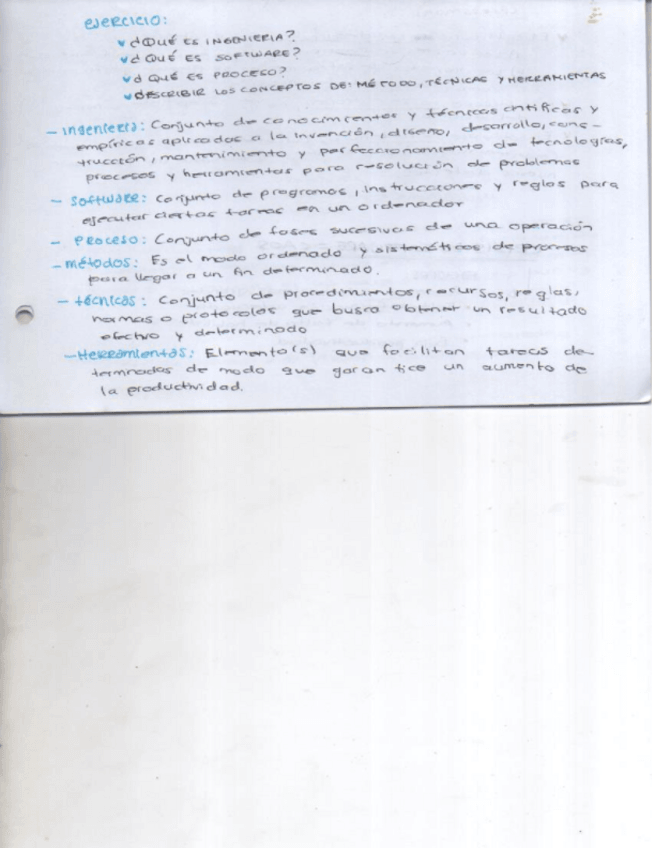 EJERCICIO:
¿QUÉ ES INGENIERIA?
¿QUÉ ES SOFTWARE?
¿QUÉ ES PROCESO?
DESCRIBIR LOS CONCEPTOS DE: MÉTODO, TÉCNICAS Y HERRAMIENTAS
- Ingeniería: Conjunto de conocimientos y técnicas cntificas y
empíricas aplicados a la invención, diseño, desarrollo, cons-
trucción, mantenimiento y perfeccionamiento de tecnologías,
procesos y herramientas para resolución de problemas
- SOFTWARE: Conjunto de programas, instrucciones y reglas para
ejecutar ciertas tareas en un ordenador
- PROCESO: Conjunto de fases sucesivas de una operación
- métodos: Es el modo ordenado y sistemáticos de procesos
para llegar a un fin determinado.
- técnicas: Conjunto de procedimientos, recursos, reglas,
normas o protocolos que busca obtener un resultado
efectivo y determinado
- Herramientas: Elemento(s) que facilitan tareas de-
terminadas de modo que garantice un aumento de
la productividad.